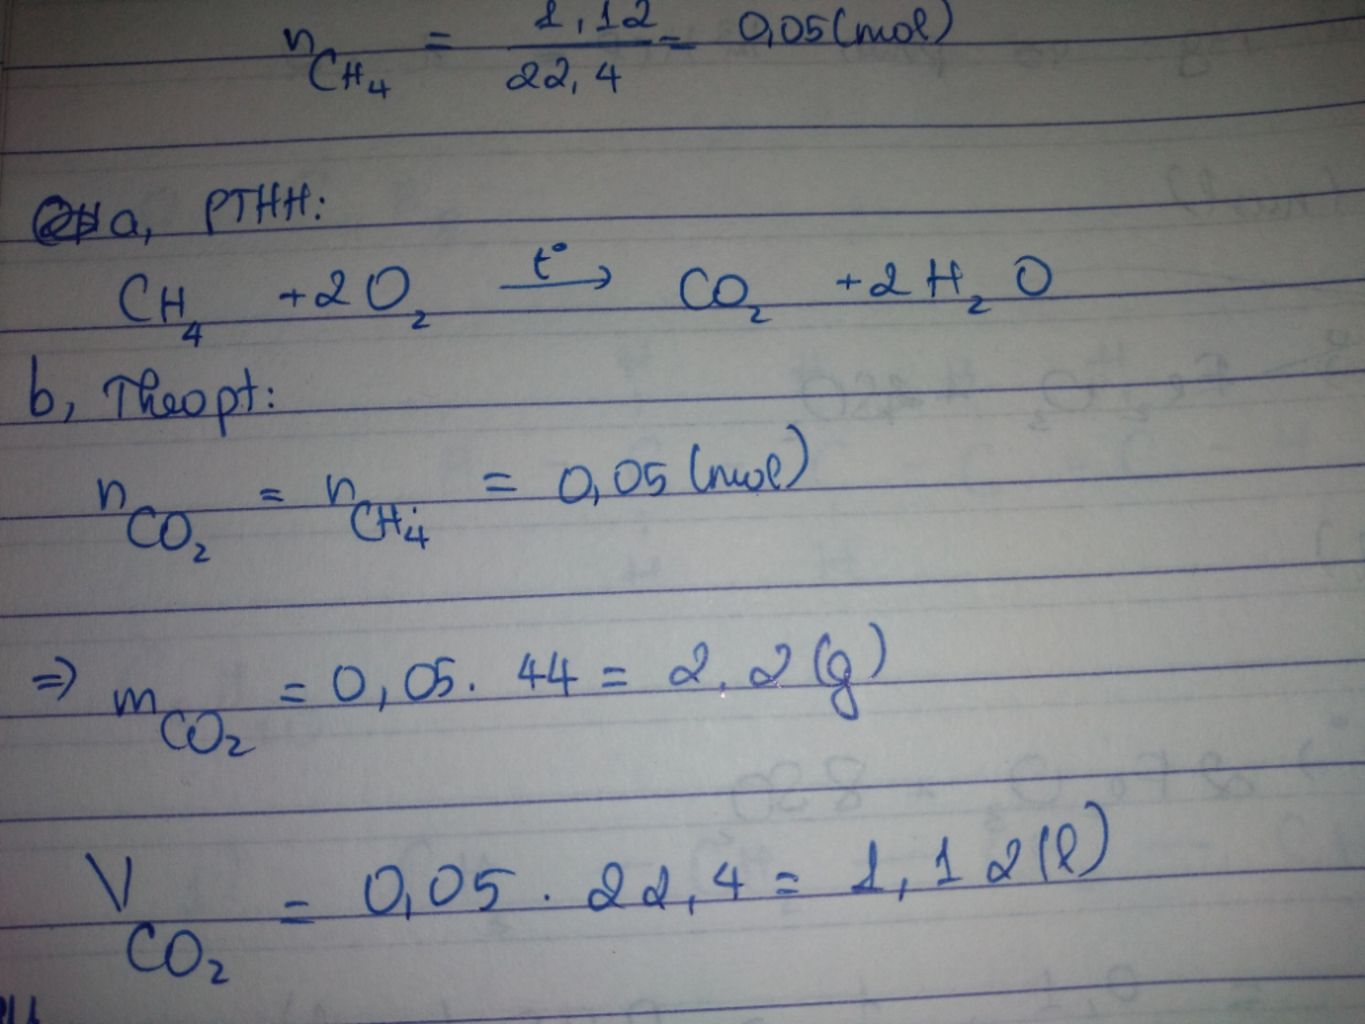 n CH₄ = 1,12 / 22,4 = 0,05 (mol)
a, PTHH:
CH₄ + 2O₂ t° → CO₂ + 2H₂O
b, Theo pt:
n CO₂ = n CH₄ = 0,05 (mol)
⇒ m CO₂ = 0,05 . 44 = 2,2 (g)
V CO₂ = 0,05 . 22,4 = 1,12 (l)